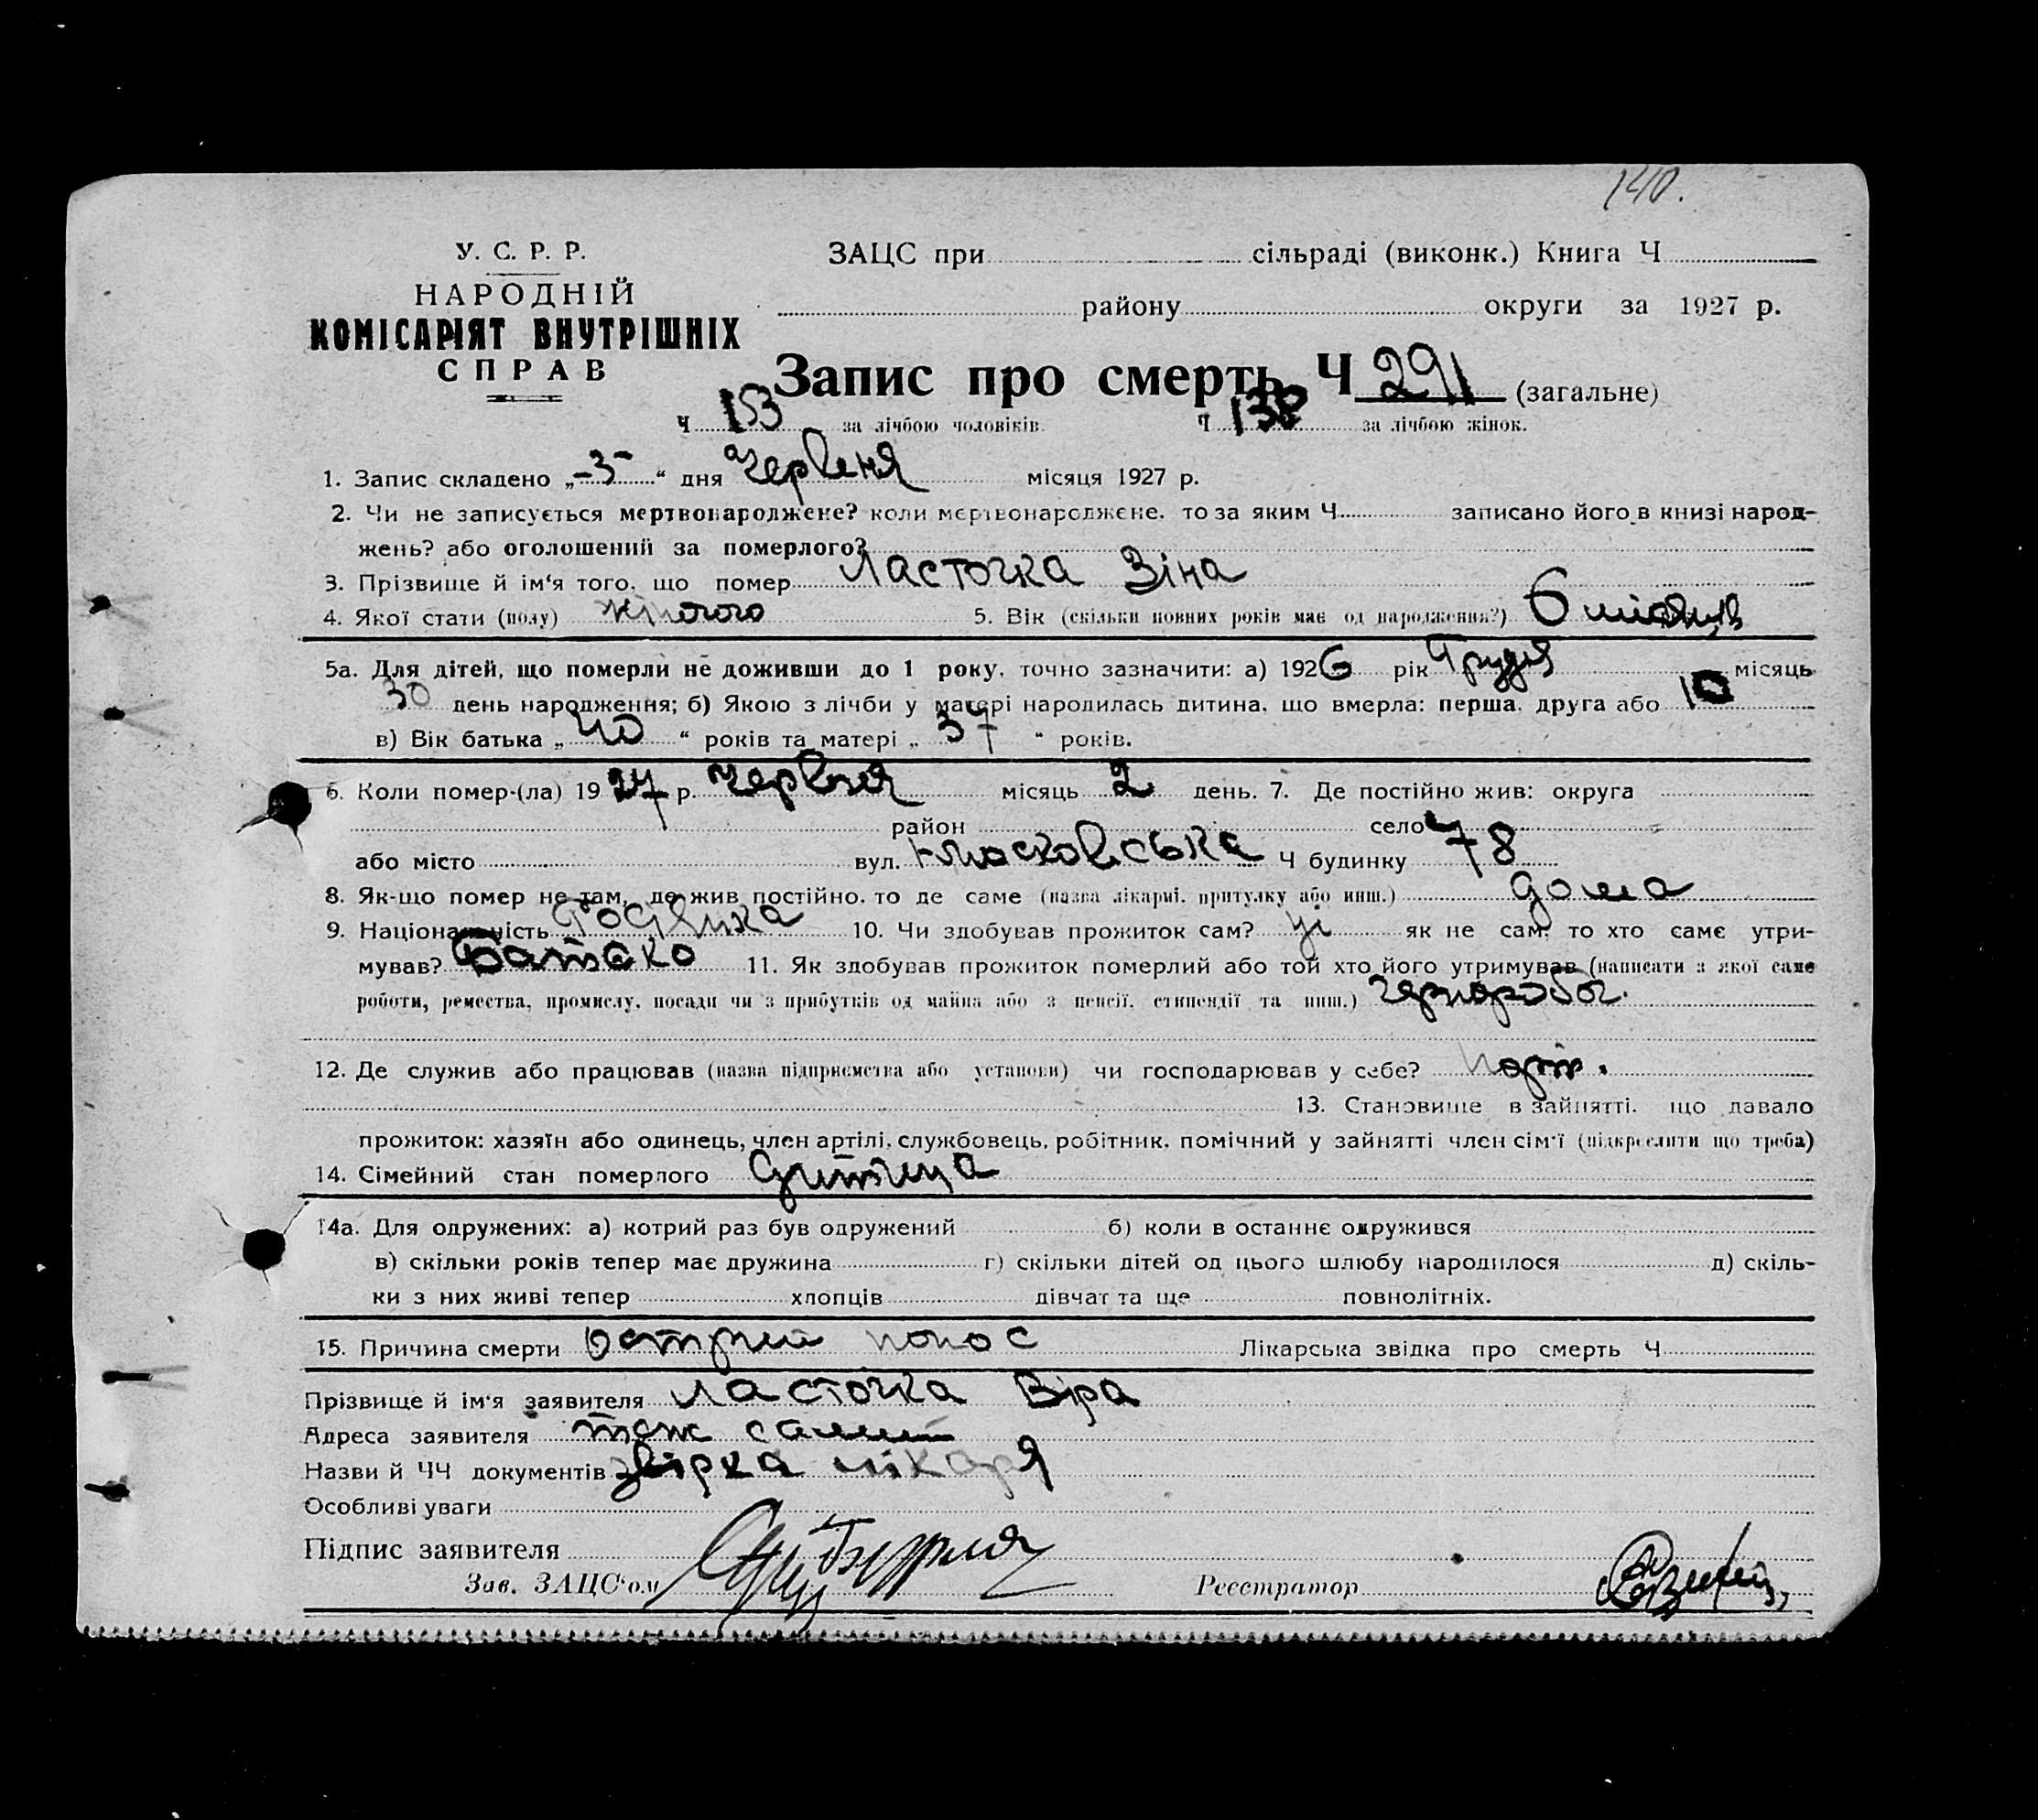 140.
У. С. Р. Р.
НАРОДНІЙ
КОМІСАРІЯТ ВНУТРІШНІХ
СПРАВ
ЗАЦС при сільраді (виконк.) Книга Ч
району округи за 1927 р.
Запис про смерть Ч 291 (загальне)
Ч 153 за лічбою чоловіків. Ч 138 за лічбою жінок.
1. Запис складено „-3-“ дня Червеня місяця 1927 р.
2. Чи не записується мертвонароджене? коли мертвонароджене, то за яким Ч. записано його в книзі народ-
жень? або оголошений за померлого?
3. Прізвище й ім‘я того, що помер Ласточка Зіна
4. Якої стати (полу) жіночого 5. Вік (скільки повних років має од народження?) 6 місяців
5а. Для дітей, що померли не доживши до 1 року, точно зазначити: а) 1926 рік Грудня місяць
30 день народження; б) Якою з лічби у матері народилась дитина, що вмерла: перша, друга або 10
в) Вік батька „40“ років та матері „37“ років.
6. Коли помер-(ла) 1927 р. червня місяць 2 день. 7. Де постійно жив: округа
район село
або місто вул. Московська Ч будинку 78
8. Як-що помер не там, де жив постійно, то де саме (назва лікарні, притулку або инш.) дома
9. Національність 10. Чи здобував прожиток сам? ні як не сам, то хто саме утри-
мував? Батько 11. Як здобував прожиток померлий або той хто його утримував (написати з якої саме
роботи, ремества, промислу, посади чи з прибутків од майна або з пенсії, стипендії та инш.) чернороб.
12. Де служив або працював (назва підприємства або установи) чи господарював у себе?
13. Становище в зайнятті, що давало
прожиток: хазяїн або одинець, член артілі, службовець, робітник, помічний у зайнятті член сім‘ї (підкреслити що треба)
14. Сімейний стан померлого Дитина
14а. Для одружених: а) котрий раз був одружений б) коли в останнє одружився
в) скільки років тепер має дружина г) скільки дітей од цього шлюбу народилося д) скіль-
ки з них живі тепер хлопців дівчат та ще повнолітніх.
15. Причина смерти острий понос Лікарська звідка про смерть Ч
Прізвище й ім‘я заявителя Ласточка Віра
Адреса заявителя
Назви й ЧЧ документів лікаря
Особливі уваги
Підпис заявителя
Зав. ЗАЦС‘ом Реєстратор